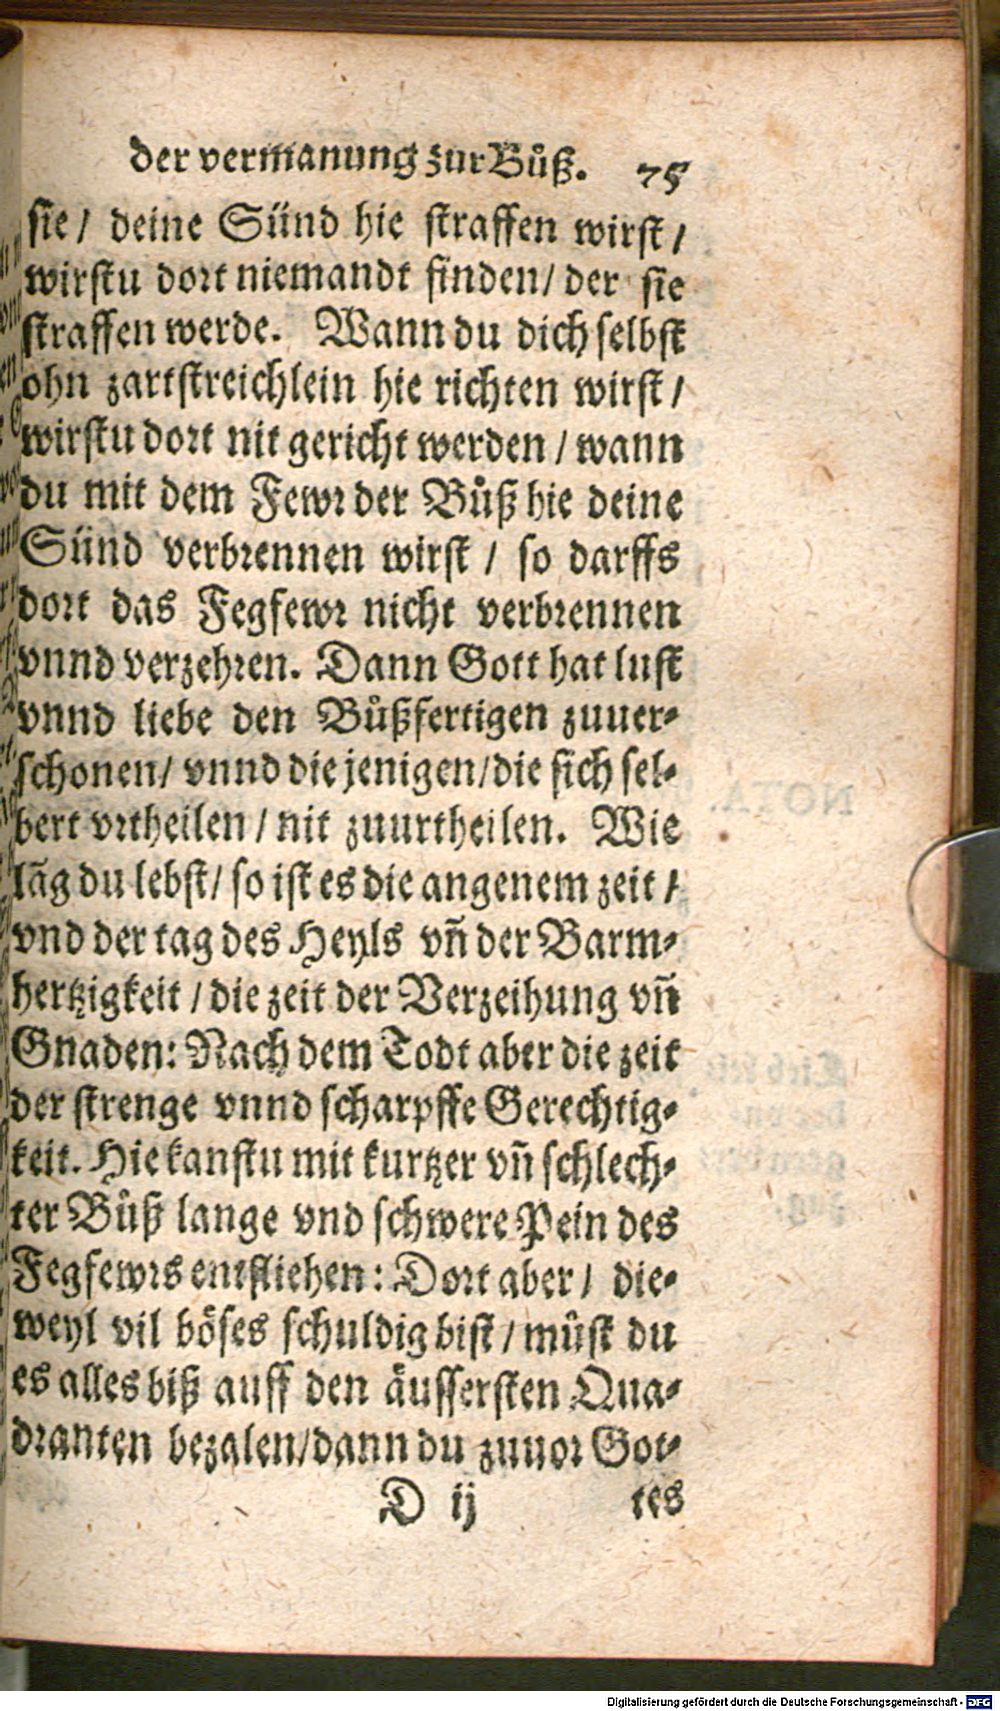 der vermanung zur Bůß. 75
sie / deine Sünd hie straffen wirst /
wirstu dort niemandt finden / der sie
straffen werde. Wann du dich selbst
ohn zartstreichlein hie richten wirst /
wirstu dort nit gericht werden / wann
du mit dem Fewr der Bůß hie deine
Sünd verbrennen wirst / so darffs
dort das Fegfewr nicht verbrennen
vnnd verzehren. Dann Gott hat lust
vnnd liebe den Bůßfertigen zuuer-
schonen / vnnd die jenigen / die sich sel-
bert vrtheilen / nit zuurtheilen. Wie
lãg du lebst / so ist es die angenem zeit /
vnd der tag des Heyls vñ der Barm-
hertzigkeit / die zeit der Verzeihung vñ
Gnaden: Nach dem Todt aber die zeit
der strenge vnnd scharpffe Gerechtig-
keit. Hie kanstu mit kurtzer vñ schlech-
ter Bůß lange vnd schwere Pein des
Fegfewrs entfliehen: Dort aber / die-
weyl vil böses schuldig bist / můst du
es alles biß auff den äussersten Qua-
dranten bezalen / dann du zuuor Got-
D ij tes
Digitalisierung gefördert durch die Deutsche Forschungsgemeinschaft - DFG